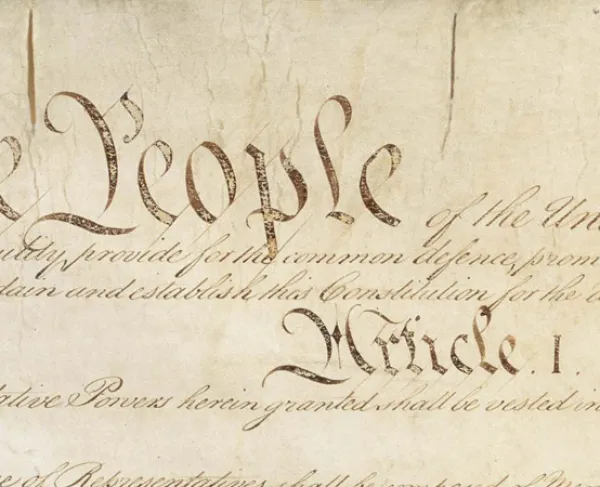 e People of the Uni
uility, provide for the common defence, prom
dain and establish this Constitution for the U
Article. I.
lative Powers herein granted shall be vested in
se of Representatives shall be composed of Mem